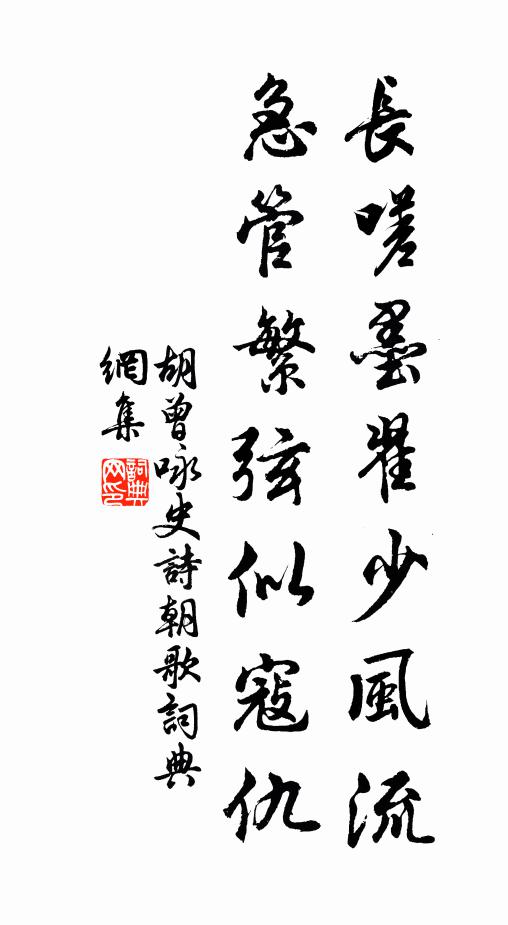 長嗟墨翟少風流
急管繁弦似寇仇
胡曾咏史詩朝歌詞典
網集
詞典网印